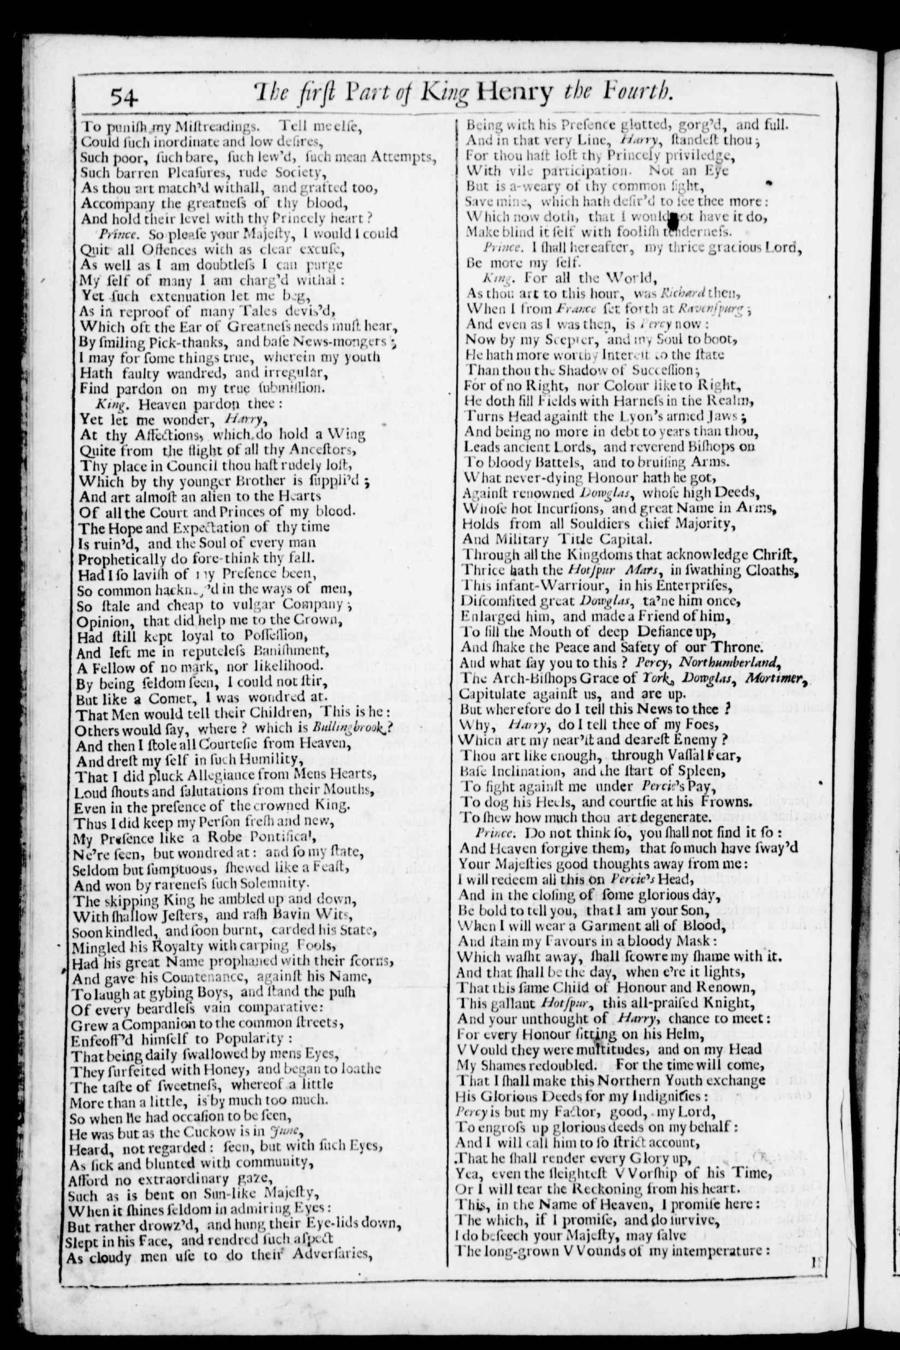 54 The firſt Part of King Henry the Fourth.
To puniſh my Miſtreadings. Tell me elſe,
Could ſuch inordinate and low deſires,
Such poor, ſuch bare, ſuch lew'd, ſuch mean Attempts,
Such barren Pleaſures, rude Society,
As thou art match'd withall, and grafted too,
Accompany the greatneſs of thy blood,
And hold their level with thy Princely heart?
Prince. So pleaſe your Majeſty, I would I could
Quit all Offences with as clear excuſe,
As well as I am doubtleſs I can purge
My ſelf of many I am charg'd withal:
Yet ſuch extenuation let me beg,
As in reproof of many Tales devis'd,
Which oft the Ear of Greatneſs needs muſt hear,
By ſmiling Pick-thanks, and baſe News-mongers;
I may for ſome things true, wherein my youth
Hath faulty wandred, and irregular,
Find pardon on my true ſubmiſſion.
King. Heaven pardon thee:
Yet let me wonder, Harry,
At thy Affections, which do hold a Wing
Quite from the flight of all thy Anceſtors,
Thy place in Council thou haſt rudely loſt,
Which by thy younger Brother is ſuppli'd;
And art almoſt an alien to the Hearts
Of all the Court and Princes of my blood.
The Hope and Expectation of thy time
Is ruin'd, and the Soul of every man
Prophetically do fore-think thy fall.
Had I ſo laviſh of my Preſence been,
So common hackney'd in the ways of men,
So ſtale and cheap to vulgar Company;
Opinion, that did help me to the Crown,
Had ſtill kept loyal to Poſſeſſion,
And left me in reputeleſs Baniſhment,
A Fellow of no mark, nor likelihood.
By being ſeldom ſeen, I could not ſtir,
But like a Comet, I was wondred at.
That Men would tell their Children, This is he:
Others would ſay, where? which is Bullingbrook?
And then I ſtole all Courteſie from Heaven,
And dreſt my ſelf in ſuch Humility,
That I did pluck Allegiance from Mens Hearts,
Loud ſhouts and ſalutations from their Mouths,
Even in the preſence of the crowned King.
Thus I did keep my Perſon freſh and new,
My Preſence like a Robe Pontifical,
Ne're ſeen, but wondred at: and ſo my ſtate,
Seldom but ſumptuous, ſhewed like a Feaſt,
And won by rareneſs ſuch Solemnity.
The skipping King he ambled up and down,
With ſhallow Jeſters, and raſh Bavin Wits,
Soon kindled, and ſoon burnt, carded his State,
Mingled his Royalty with carping Fools,
Had his great Name prophaned with their ſcorns,
And gave his Countenance, againſt his Name,
To laugh at gybing Boys, and ſtand the puſh
Of every beardleſs vain comparative:
Grew a Companion to the common ſtreets,
Enfeoff'd himſelf to Popularity:
That being daily ſwallowed by mens Eyes,
They ſurfeited with Honey, and began to loathe
The taſte of ſweetneſs, whereof a little
More than a little, is by much too much.
So when he had occaſion to be ſeen,
He was but as the Cuckow is in June,
Heard, not regarded: ſeen, but with ſuch Eyes,
As ſick and blunted with community,
Afford no extraordinary gaze,
Such as is bent on Sun-like Majeſty,
When it ſhines ſeldom in admiring Eyes:
But rather drowz'd, and hung their Eye-lids down,
Slept in his Face, and rendred ſuch aſpect
As cloudy men uſe to do their Adverſaries,
Being with his Preſence glotted, gorg'd, and full.
And in that very Line, Harry, ſtandeſt thou;
For thou haſt loſt thy Princely priviledge,
With vile participation. Not an Eye
But is a-weary of thy common ſight,
Save mine, which hath deſir'd to ſee thee more:
Which now doth, that I would not have it do,
Make blind it ſelf with fooliſh tenderneſs.
Prince. I ſhall hereafter, my thrice gracious Lord,
Be more my ſelf.
King. For all the World,
As thou art to this hour, was Richard then,
When I from France ſet forth at Ravenſpurg;
And even as I was then, is Percy now:
Now by my Scepter, and my Soul to boot,
He hath more worthy Intereſt to the ſtate
Than thou the Shadow of Succeſſion;
For of no Right, nor Colour like to Right,
He doth fill Fields with Harneſs in the Realm,
Turns Head againſt the Lyon's armed Jaws;
And being no more in debt to years than thou,
Leads ancient Lords, and reverend Biſhops on
To bloody Battels, and to bruiſing Arms.
What never-dying Honour hath he got,
Againſt renowned Dowglas, whoſe high Deeds,
Whoſe hot Incurſions, and great Name in Arms,
Holds from all Souldiers chief Majority,
And Military Title Capital.
Through all the Kingdoms that acknowledge Chriſt,
Thrice hath the Hotſpur Mars, in ſwathing Cloaths,
This infant-Warriour, in his Enterpriſes,
Diſcomfited great Dowglas, ta'ne him once,
Enlarged him, and made a Friend of him,
To fill the Mouth of deep Defiance up,
And ſhake the Peace and Safety of our Throne.
And what ſay you to this? Percy, Northumberland,
The Arch-Biſhops Grace of York, Dowglas, Mortimer,
Capitulate againſt us, and are up.
But wherefore do I tell this News to thee?
Why, Harry, do I tell thee of my Foes,
Which art my near'ſt and deareſt Enemy?
Thou art like enough, through Vaſſal Fear,
Baſe Inclination, and the ſtart of Spleen,
To fight againſt me under Percie's Pay,
To dog his Heels, and courtſie at his Frowns.
To ſhew how much thou art degenerate.
Prince. Do not think ſo, you ſhall not find it ſo:
And Heaven forgive them, that ſo much have ſway'd
Your Majeſties good thoughts away from me:
I will redeem all this on Percie's Head,
And in the cloſing of ſome glorious day,
Be bold to tell you, that I am your Son,
When I will wear a Garment all of Blood,
And ſtain my Favours in a bloody Mask:
Which waſht away, ſhall ſcowre my ſhame with it.
And that ſhall be the day, when e're it lights,
That this ſame Child of Honour and Renown,
This gallant Hotſpur, this all-praiſed Knight,
And your unthought of Harry, chance to meet:
For every Honour ſitting on his Helm,
VVould they were multitudes, and on my Head
My Shames redoubled. For the time will come,
That I ſhall make this Northern Youth exchange
His Glorious Deeds for my Indignities:
Percy is but my Factor, good, my Lord,
To engroſs up glorious deeds on my behalf:
And I will call him to ſo ſtrict account,
That he ſhall render every Glory up,
Yea, even the ſleighteſt VVorſhip of his Time,
Or I will tear the Reckoning from his heart.
This, in the Name of Heaven, I promiſe here:
The which, if I promiſe, and do ſurvive,
I do beſeech your Majeſty, may ſalve
The long-grown VVounds of my intemperature: